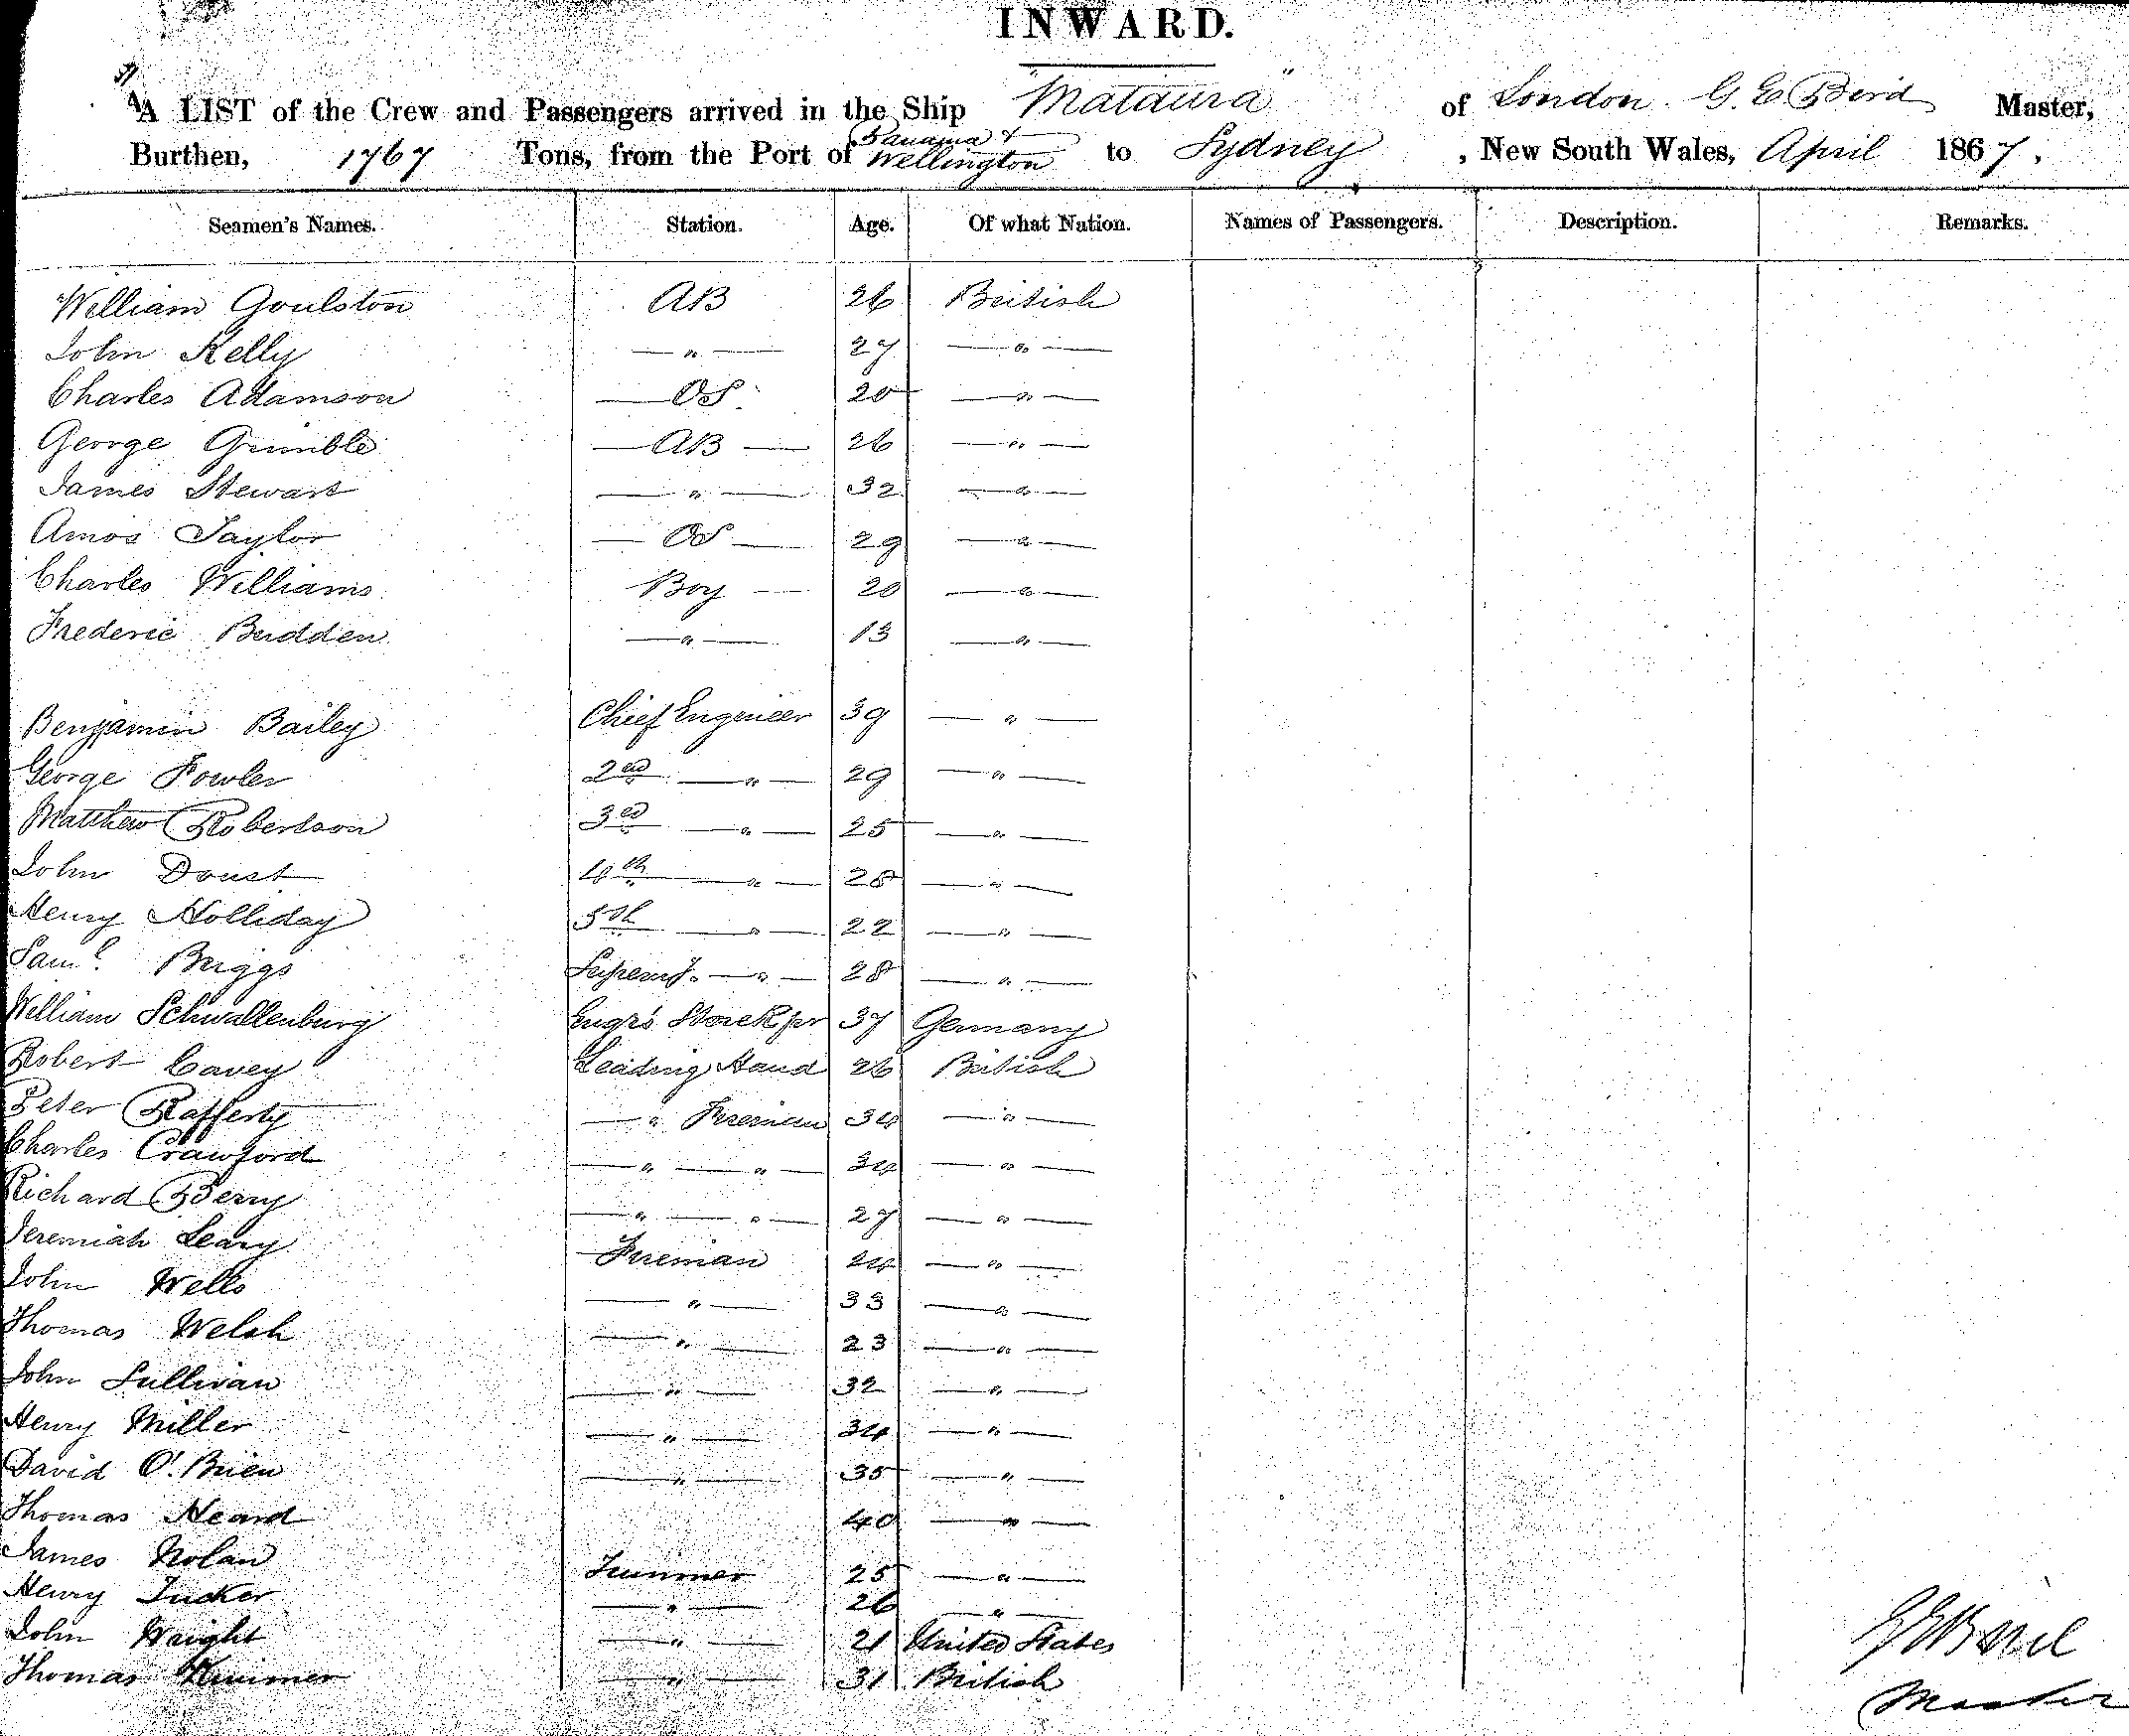 INWARD.
A LIST of the Crew and Passengers arrived in the Ship "Mataura" of London G. E. Bird Master,
Burthen, 1767 Tons, from the Port of Panama & Wellington to Sydney, New South Wales, April 1867,
Seamen's Names. Station. Age. Of what Nation. Names of Passengers. Description. Remarks.
William Goulston AB 26 British
John Kelly — " — 27 — " —
Charles Adamson — OS 20 — " —
George Grimble — AB — 26 — " —
James Stewart — " — 32 — " —
Amos Taylor — OS — 29 — " —
Charles Williams Boy — 20 — " —
Frederic Budden — " — 13 — " —
Benjamin Bailey Chief Engineer 39 — " —
George Fowler 2nd — " — 29 — " —
Matthew Robertson 3rd — " — 25 — " —
John Doust 4th — " — 28 — " —
Henry Holliday 5th — " — 22 — " —
Saml. Briggs — " — 28 — " —
William Schwallenburg Engrs Storekpr 37 Germany
Robert Cavey Leading Hand 26 British
Peter Rafferty — " Fireman 34 — " —
Charles Crawford — " — " — 34 — " —
Richard Berry — " — " — 27 — " —
Jeremiah Leary Fireman 24 — " —
John Wells — " — 33 — " —
Thomas Welsh — " — 23 — " —
John Sullivan — " — 32 — " —
Henry Miller — " — 34 — " —
David O'Brien — " — 35 — " —
Thomas Heard 40 — " —
James Nolan Trimmer 25 — " —
Henry Tucker — " — 26 — " —
John Wright — " — 21 United States
Thomas — " — 31 British
G E Bird
Master